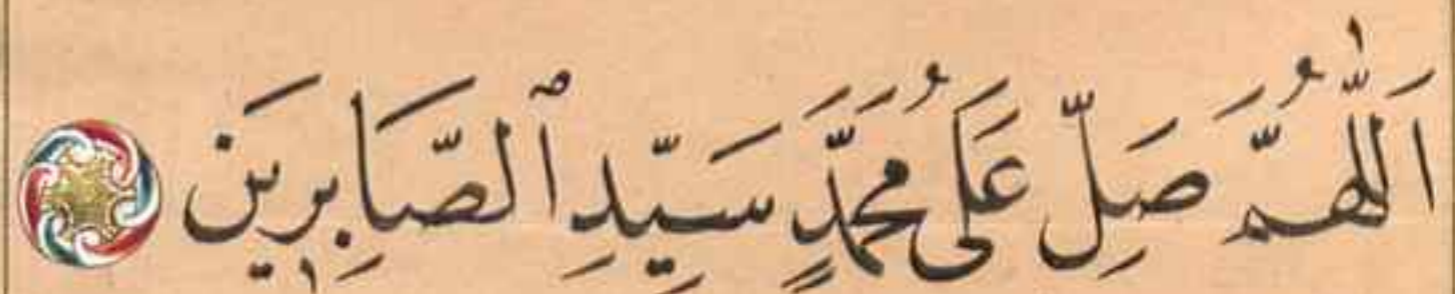 اَللّٰهُمَّ صَلِّ عَلَى مُحَمَّدٍ سَيِّدِ ٱلصَّابِرِينَ